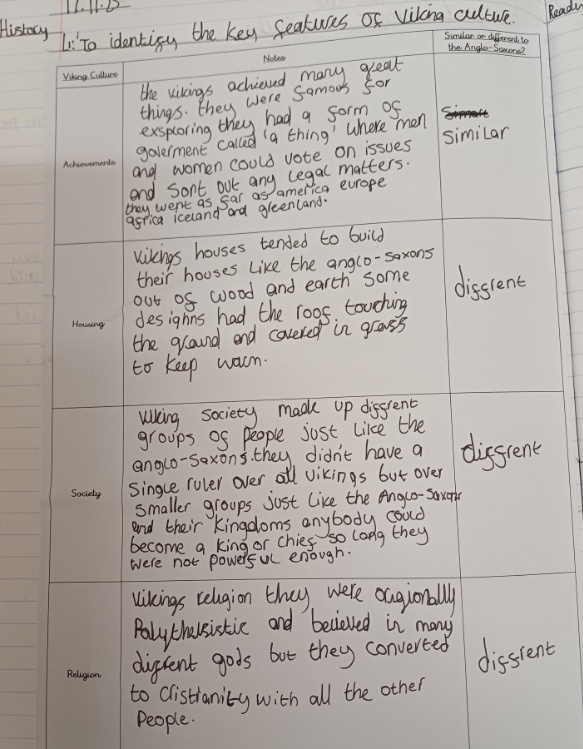 17.11.25
History
Readin
L.I: To identify the key features of Viking culture.
Viking Culture
Notes
Similar or different to
the Anglo-Saxons?
Achievements
the vikings achieved many great
things. they were famous for
exsploring they had a form of
goverment called 'a thing' where men
and women could vote on issues
and sort out any legal matters.
they went as far as america europe
africa iceland and greenland.
Similar
Housing
Vikings houses tended to build
their houses like the anglo-saxons
out of wood and earth some
desighns had the roof touching
the ground and covered in grass
to keep warm.
diffrent
Society
Viking society made up diffrent
groups of people just like the
anglo-saxons. they didn't have a
single ruler over all vikings but over
smaller groups just like the Anglo-Saxons
and their kingdoms anybody could
become a king or chief so long they
were not powerful enough.
diffrent
Religion
Vikings religion they were origionally
Polytheisistic and believed in many
diffrent gods but they converted
to Cristianity with all the other
People.
diffrent